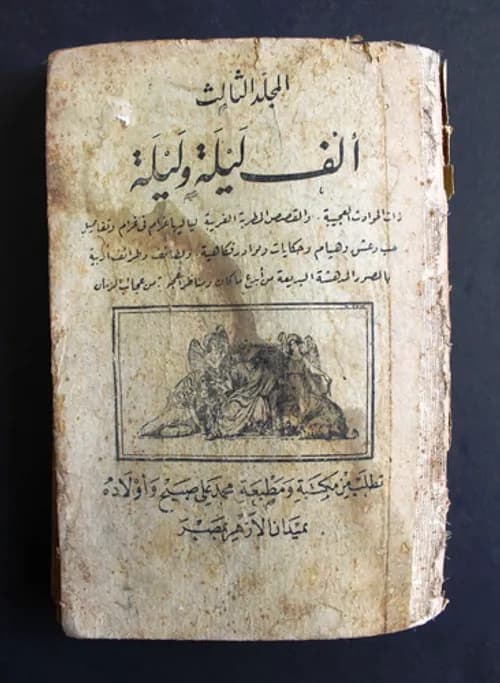 المجلد الثالث
ألف ليلة وليلة
ذات الحوادث العجيبة . والقصص المطربة الغريبة لياليها غرام في غرام وتفاصيل
حب وعشق وهيام وحكايات ونوادر فكاهية، ولطائف وطرائف أدبية
بالصور المدهشة البديعة من أبدع ما كان ومناظر أعجوبة من عجائب الزمان
تطلب من مكتبة ومطبعة محمد علي صبيح وأولاده
بميدان الأزهر بمصر